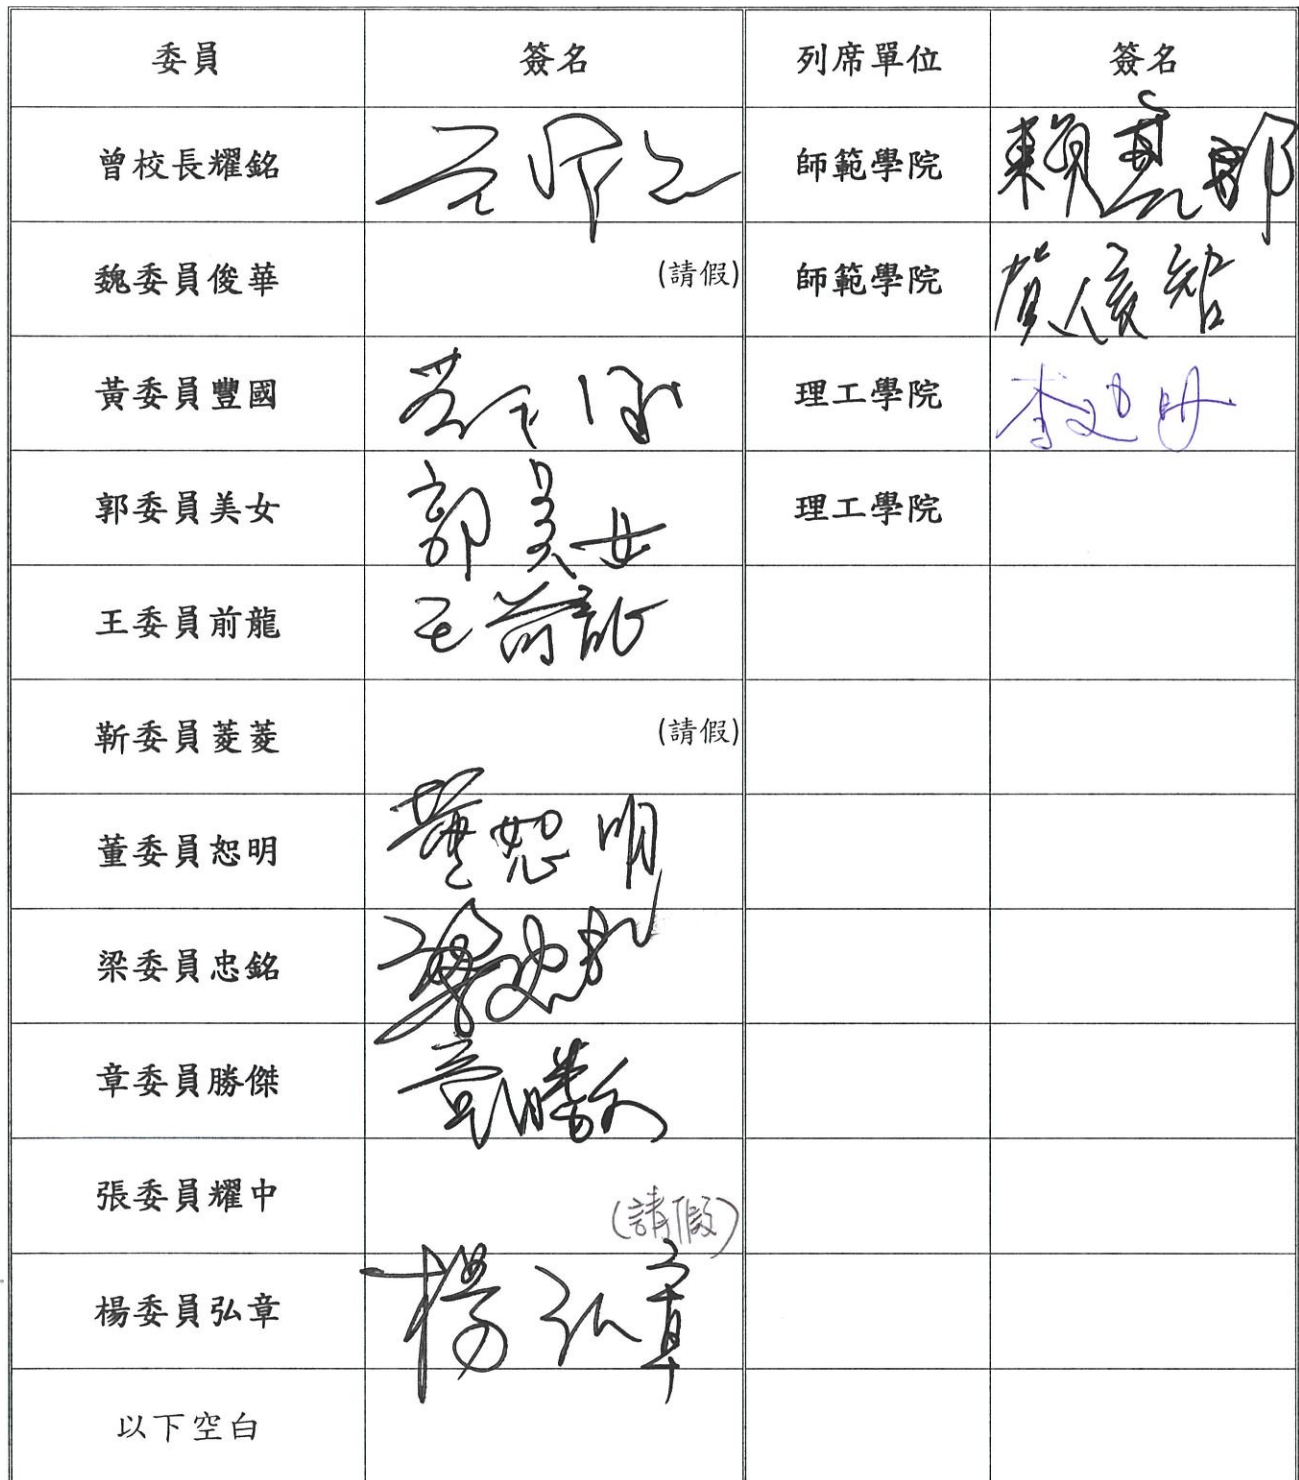 委員 簽名 列席單位 簽名
曾校長耀銘 師範學院
魏委員俊華 (請假) 師範學院
黃委員豐國 理工學院 李建明
郭委員美女 郭美女 理工學院
王委員前龍 王前龍
靳委員菱菱 (請假)
董委員恕明 董恕明
梁委員忠銘 梁忠銘
章委員勝傑 章勝傑
張委員耀中 (請假)
楊委員弘章 楊弘章
以下空白